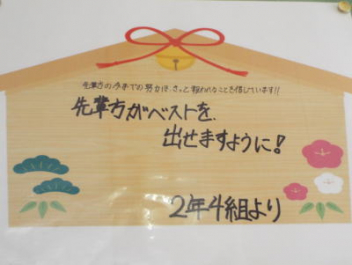 先輩方の今までの努力が、きっと報われることを信じています!!
先輩方がベストを
出せますように!
2年4組より